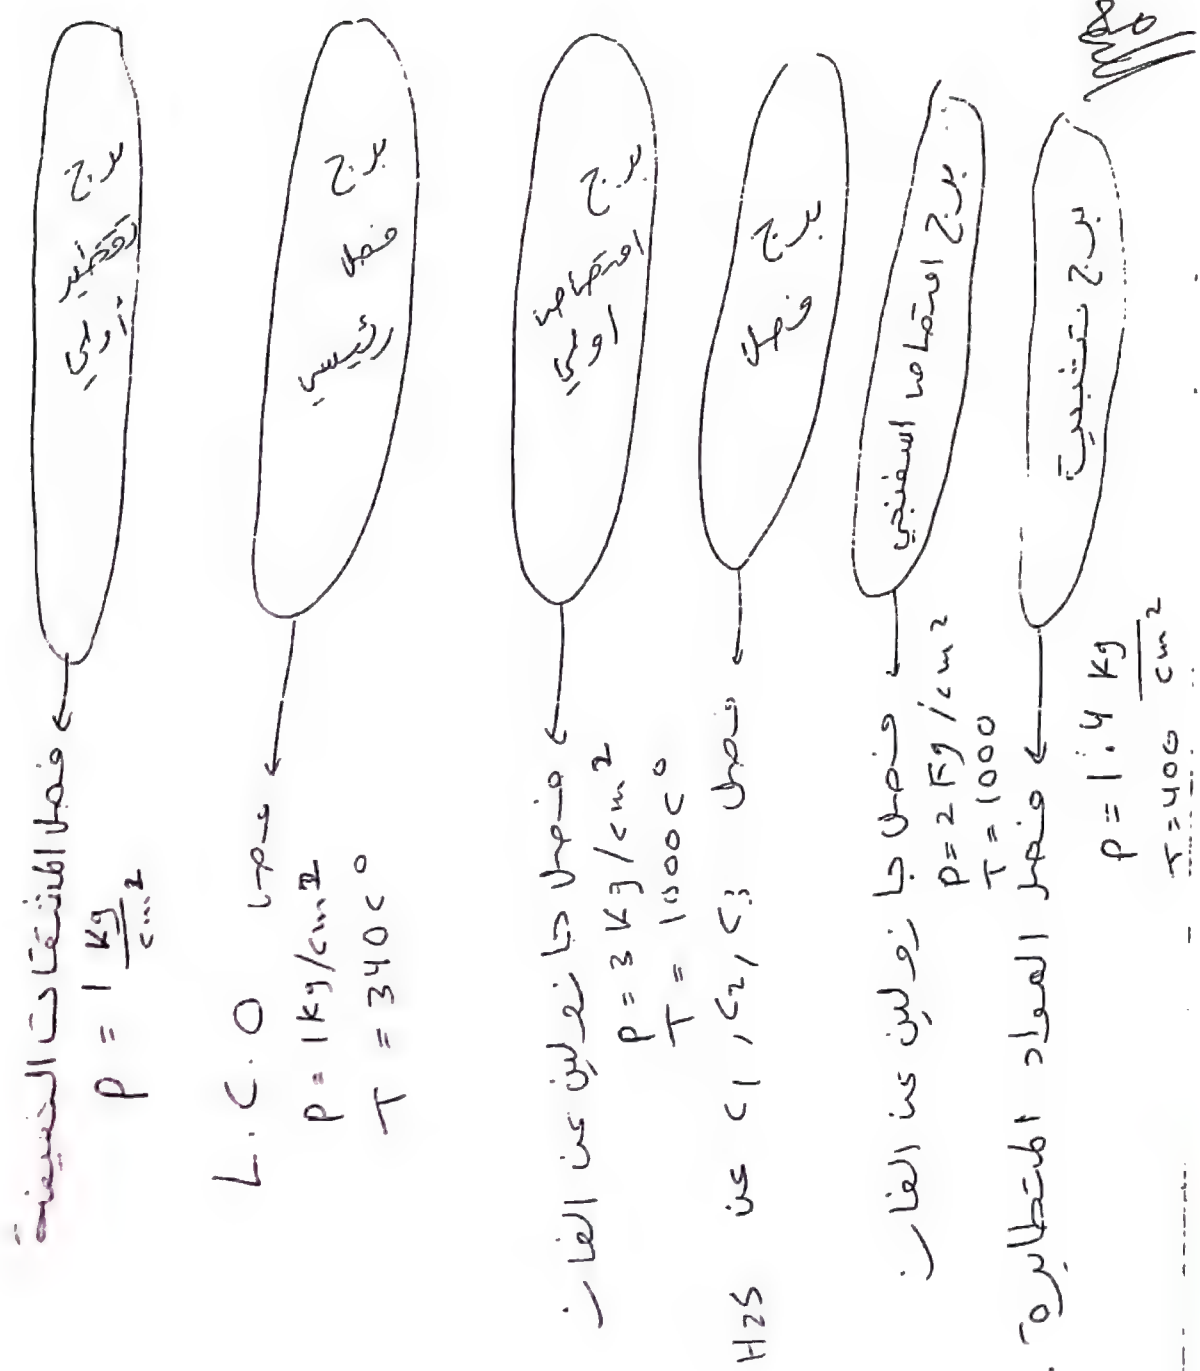 برج
تقطير
أولي
فصل المشتقات الخفيفة
P = 1 Kg/cm2
برج
فصل
رئيسي
فصل L.C.O
P = 1Kg/cm2
T = 340C°
برج
امتصاص
اولي
فصل جازولين عن الغاز
P = 3 Kg/cm2
T = 1000C°
برج
فصل
فصل C1, C2, C3 عن H2S
برج امتصاص اسفنجي
فصل جازولين عن الغاز
P = 2 Kg/cm2
T = 1000
برج تثبيت
فصل المواد المتطايرة
P = 1.4 Kg/cm2
T = 400